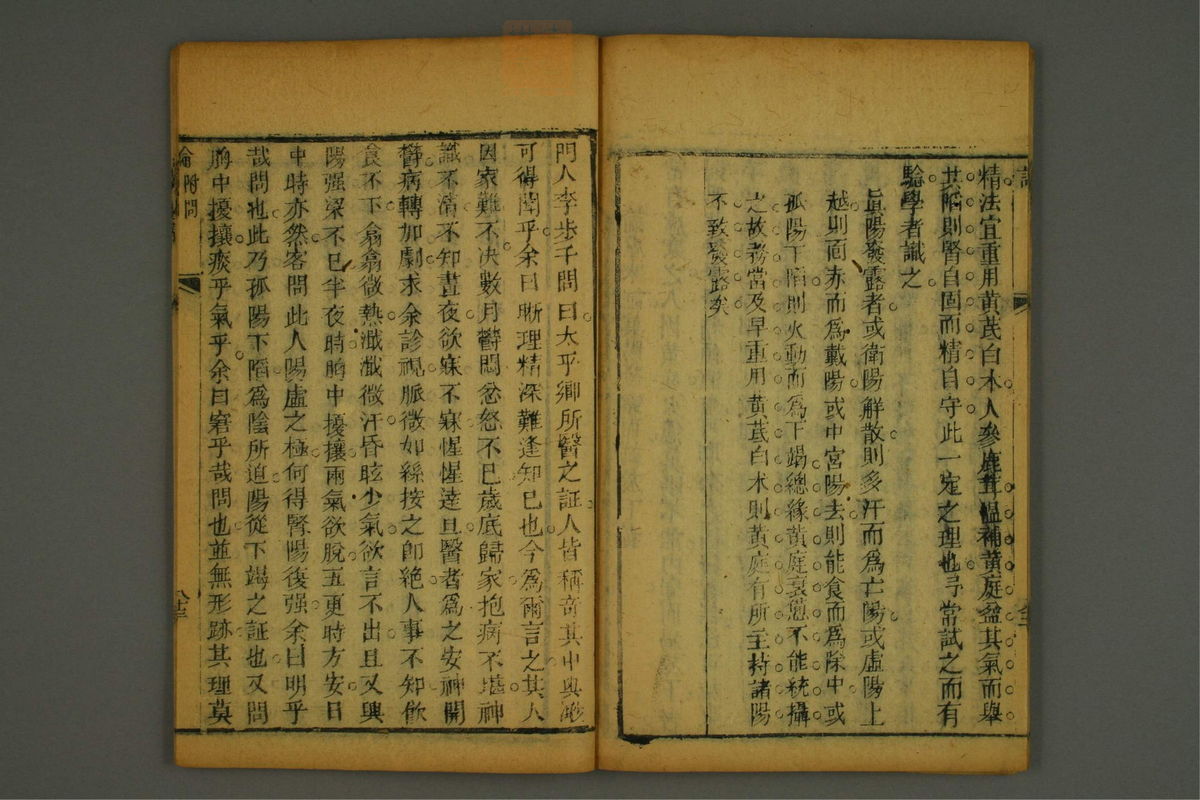 精法宜重用黃茋白术人參鹿茸溫補黃庭盆其氣而舉
其陷則腎自固而精自守此一定之理也予常試之而有
驗學者識之
眞陽發露者或衛陽解散則多汗而為亡陽或虛陽上
越則面赤而為戴陽或中宮陽去則能食而為除中或
孤陽下陷則火動而為下竭總緣黃庭衰憊不能統攝
之故務當及早重用黃茋白术則黃庭有所主持諸陽
不致發露矣
門人李步千問曰太乎鄉所醫之証人皆稱奇其中奧
可得聞乎余曰晰理精深難逢知已也今為爾言之其人
因家難不决數月鬱悶忿怒不已歲底歸家抱病不堪神
識不清不知晝夜欲寐不寐惺惺達旦醫者為之安神開
鬱病轉加劇求余診視脈微如絲按之卽絕人事不知飲
食不下翕翕微熱濈濈微汗昏眩少氣欲言不出且又興
陽强梁不已半夜時胸中擾攘兩氣欲脫五更時方安日
中時亦然客問此人陽虛之極何得腎陽復强余曰明乎
哉問也此乃孤陽下陷為陰所迫陽從下竭之証也又問
胸中擾攘痰乎氣乎余曰窘乎哉問也並無形跡其理莫
附問